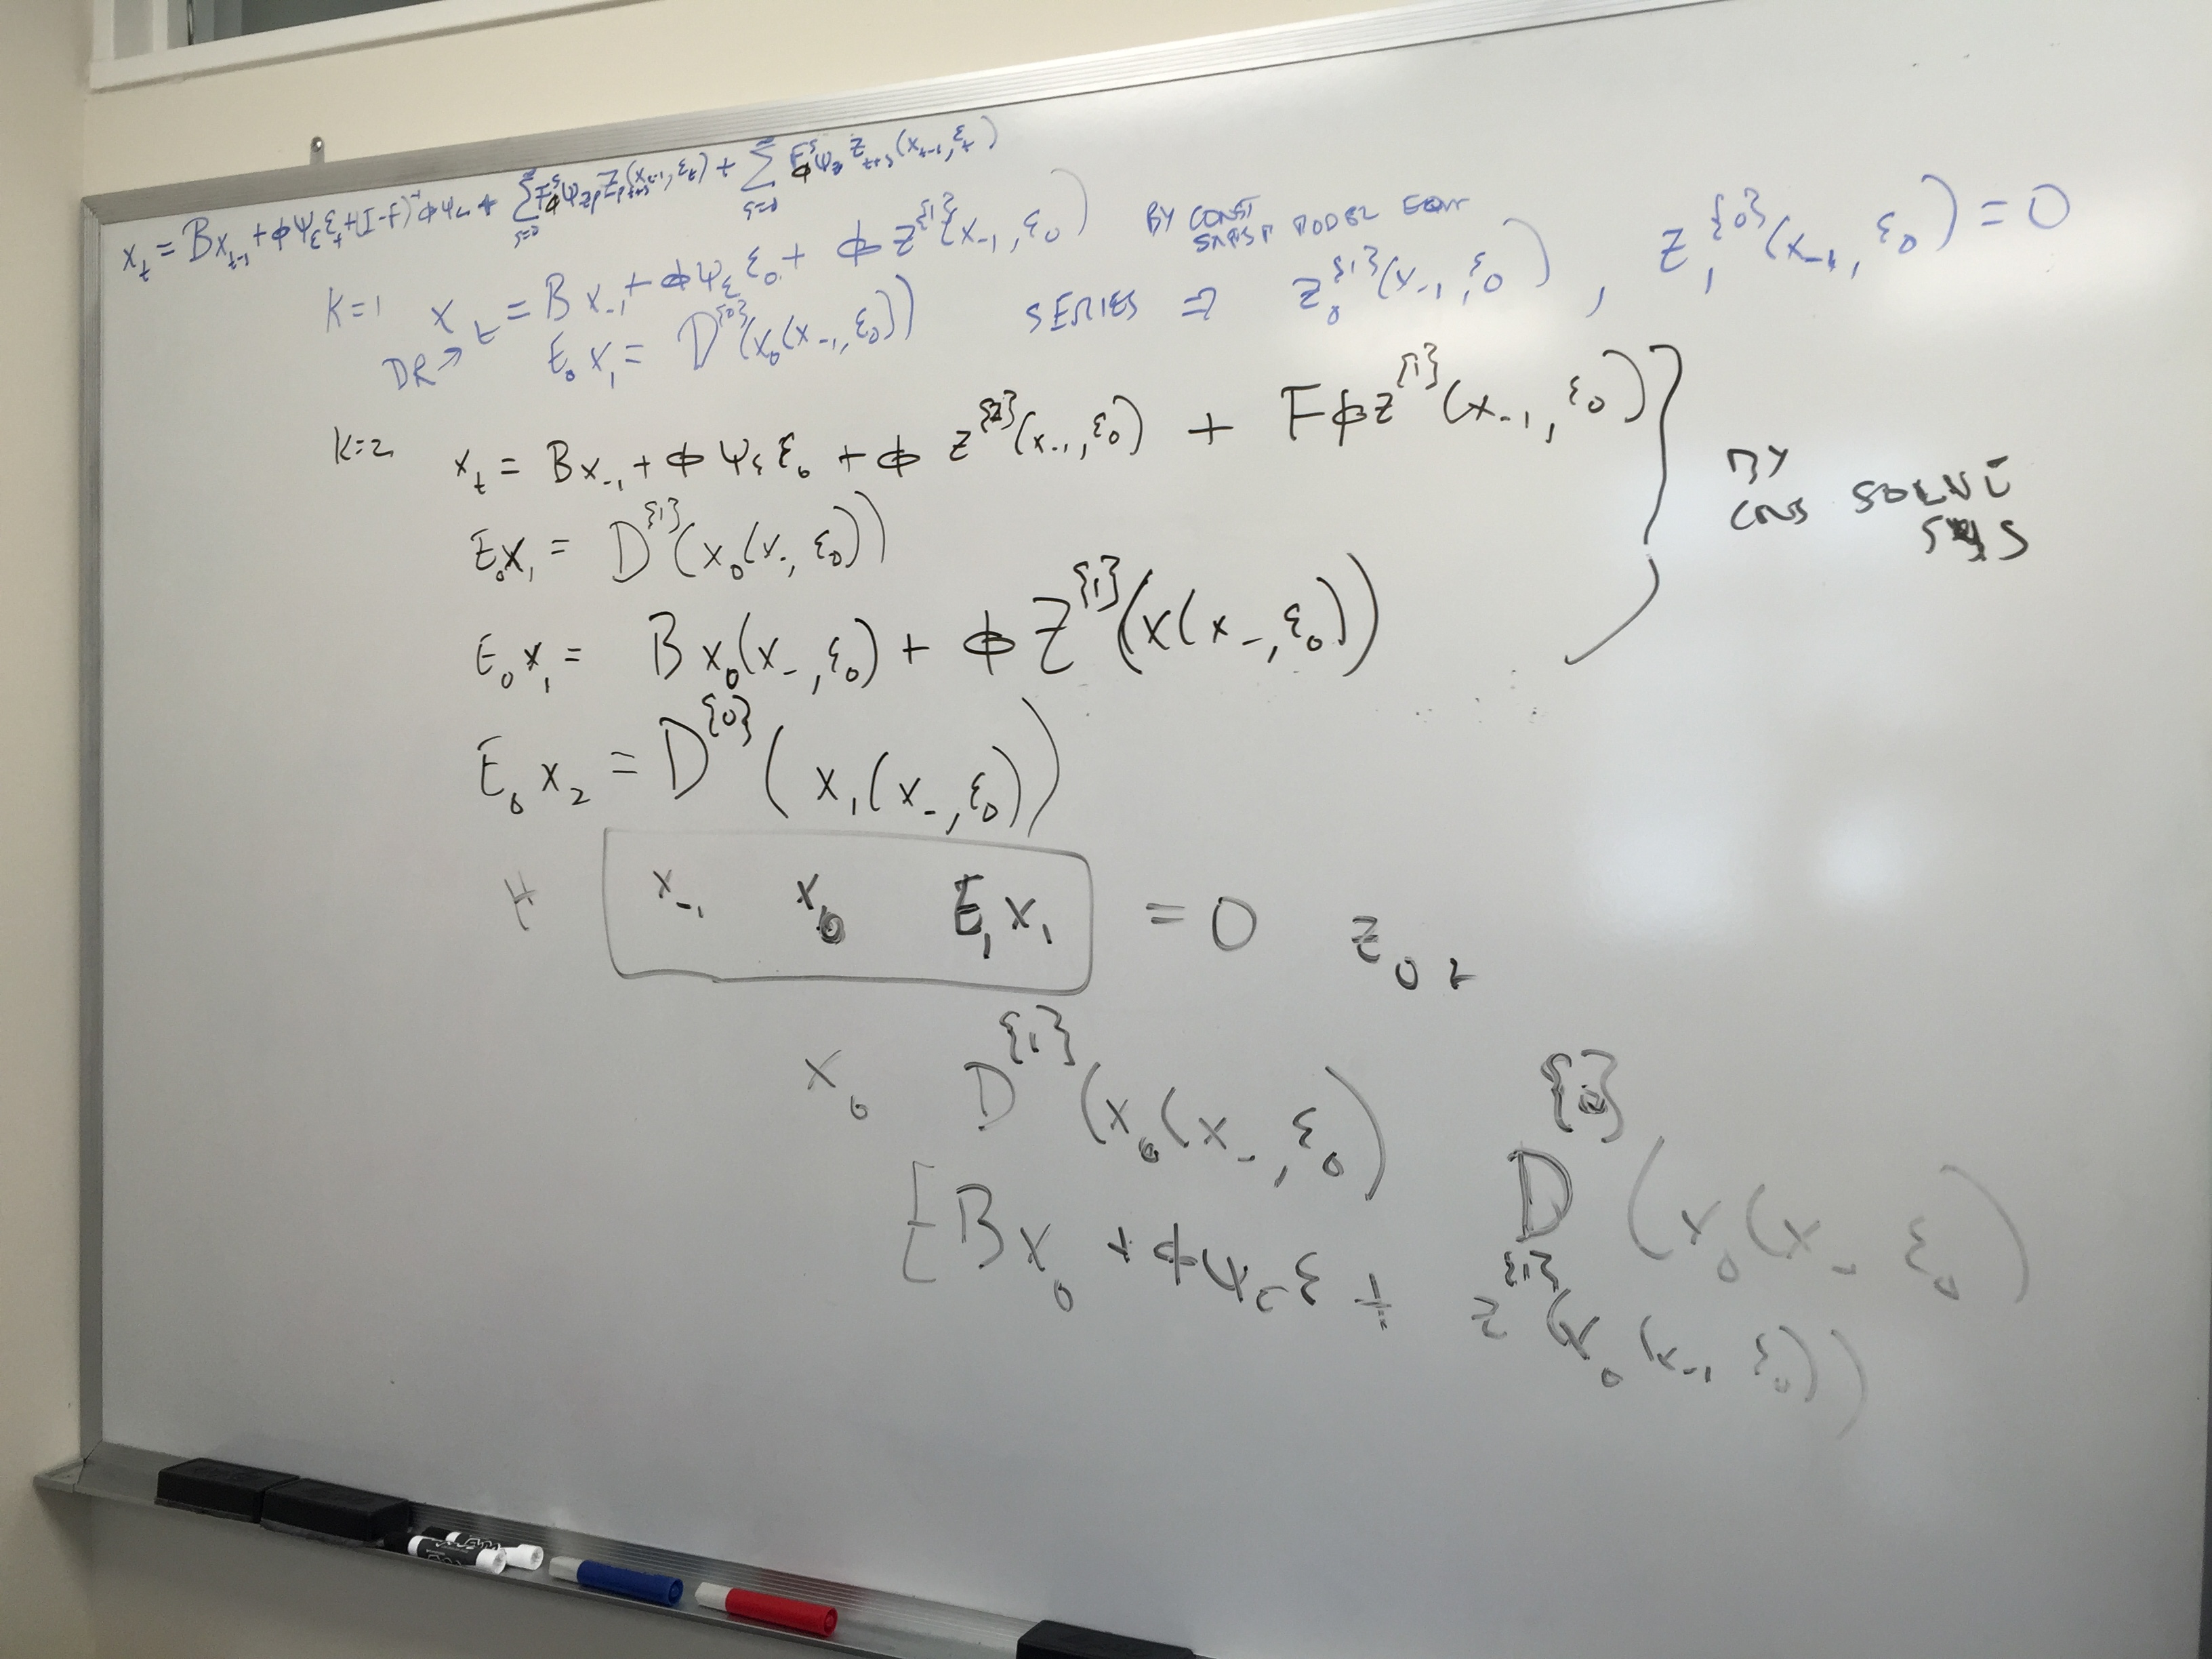 x_t = Bx_{t-1} + φψ_ε ε_t + (I-F)^{-1} φψ_c + Σ_{s=0}^∞ F^s φ ψ_{zp} Z_{p t+s}(x_{t-1}, ε_t) + Σ_{s=0}^∞ F^s φ ψ_z Z_{t+s}(x_{t-1}, ε_t)
K=1 x_t = Bx_{-1} + φψ_ε ε_0 + φ z^{{1}}(x_{-1}, ε_0) BY CONST MODEL EQN
DR → E_0 x_1 = D^{{0}}(x_0(x_{-1}, ε_0)) SERIES ⇒ z_0^{{1}}(x_{-1}, ε_0), z_1^{{0}}(x_{-1}, ε_0) = 0
K=2 x_t = Bx_{-1} + φ ψ_ε ε_0 + φ z^{{2}}(x_{-1}, ε_0) + Fφz^{{1}}(x_{-1}, ε_0)
BY
SOLVE
SYS
E_0 x_1 = D^{{1}}(x_0(x_-, ε_0))
E_0 x_1 = B x_0(x_-, ε_0) + φ Z^{{1}}(x(x_-, ε_0))
E_0 x_2 = D^{{0}}(x_1(x_-, ε_0))
H x_{-1} x_0 E_1 x_1 = 0 z_0
x_0 D^{{1}}(x_0(x_-, ε_0) D (x_0(x_- ε_0)
[Bx_0 + φψ_ε ε + z^{{1}}(x_0(x_{-1} ε_0))